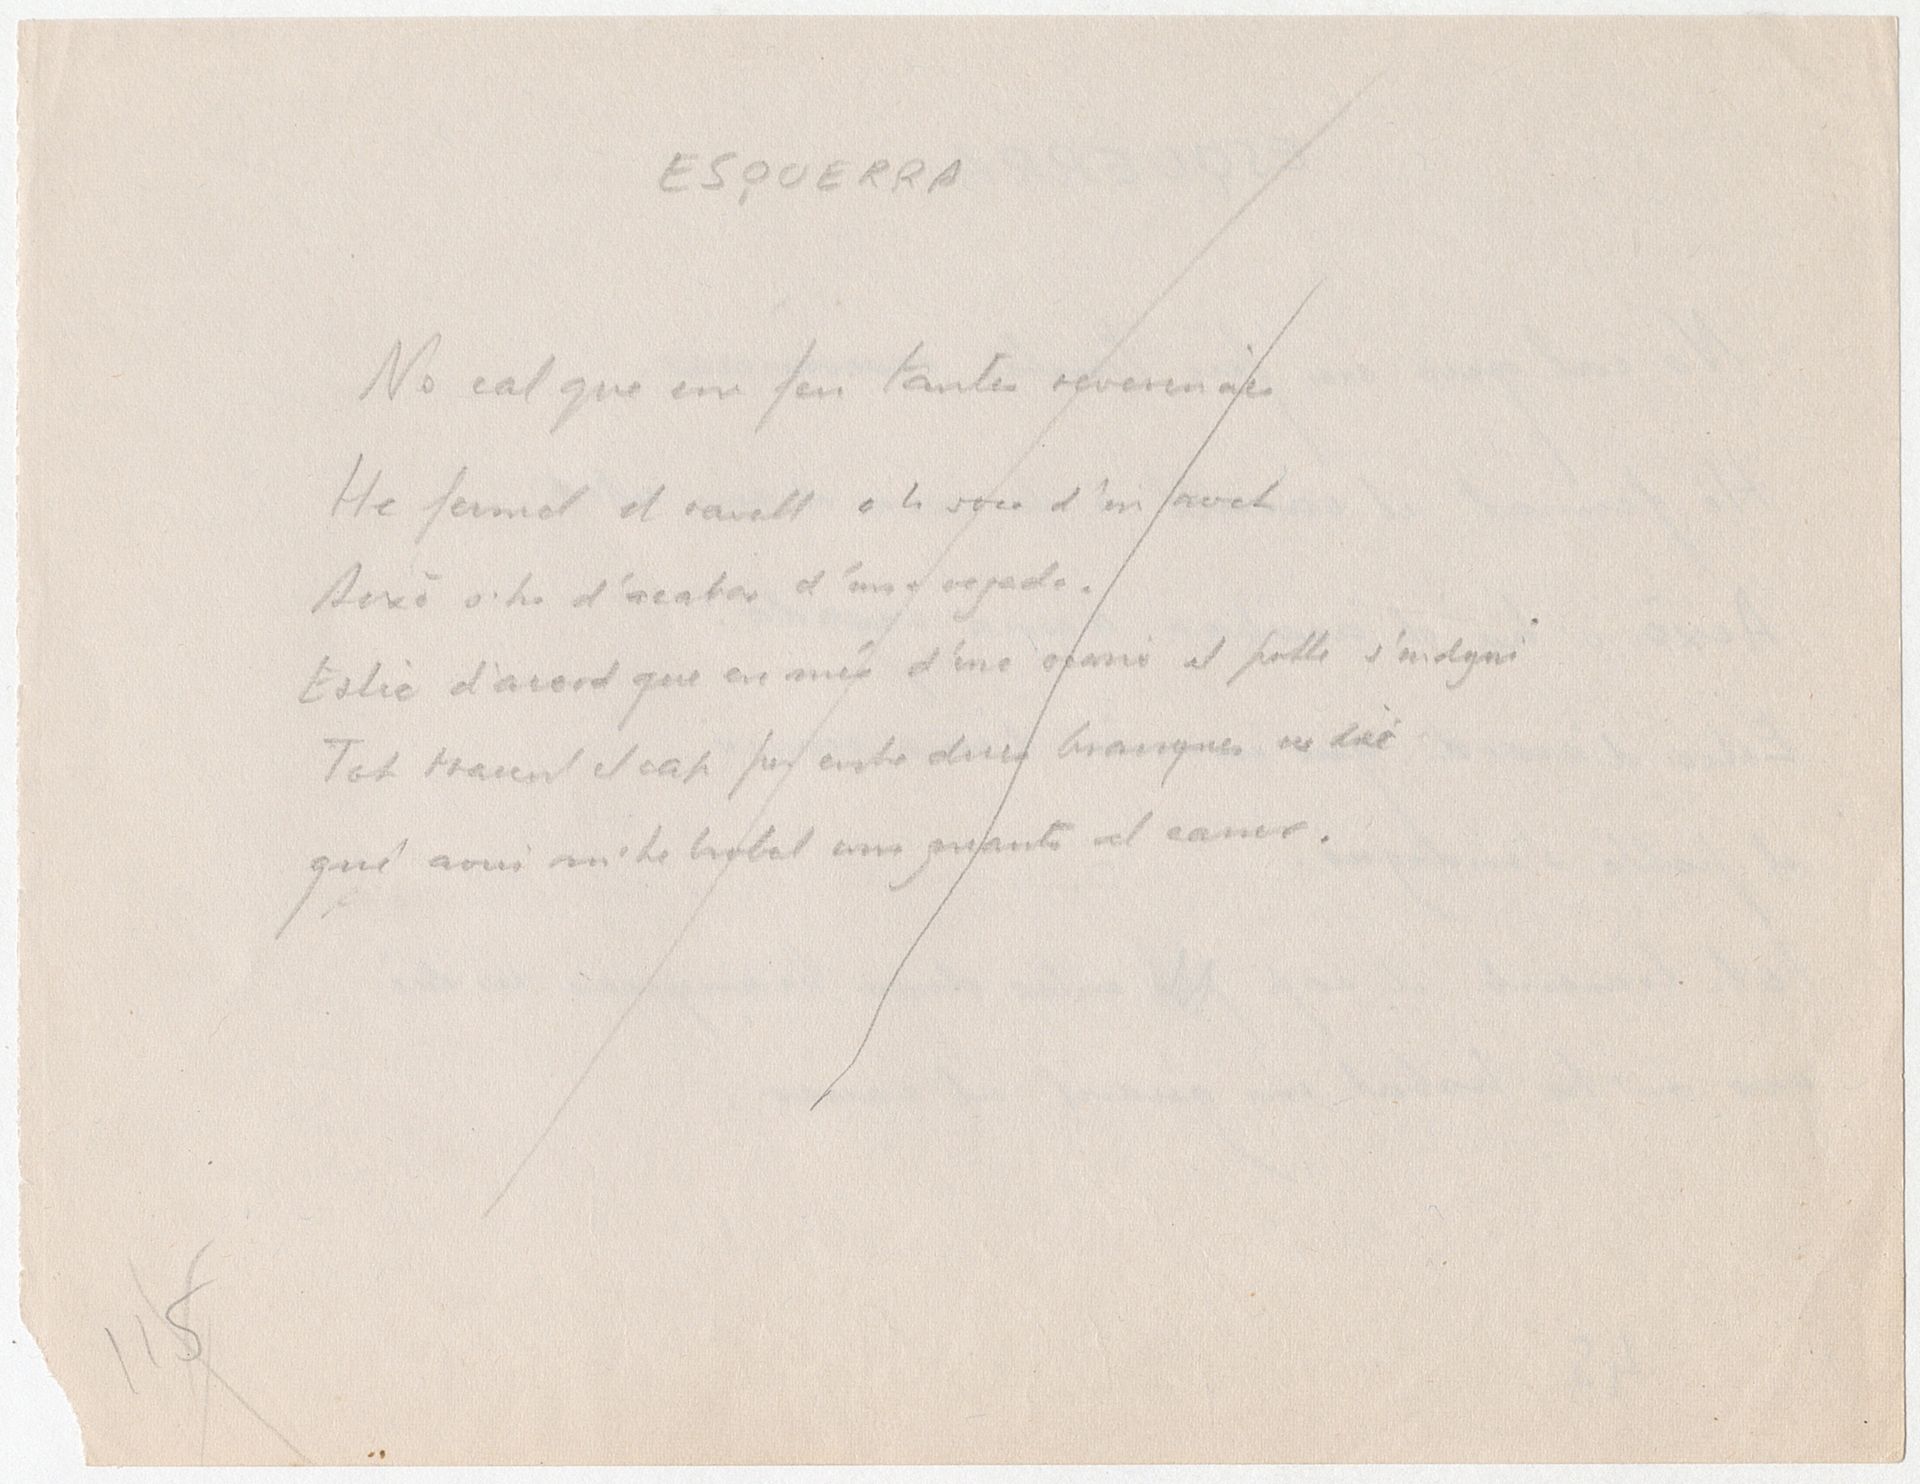 ESQUERRA
No cal que em feu tantes reverències
He fermat el cavall a la soca d'un avet
Això s'ha d'acabar d'una vegada.
Estic d'acord que en més d'una ocasió el poble s'indigni
Tot traient el cap per entre dues branques us diré
que avui m'he trobat uns guants al carrer.
115